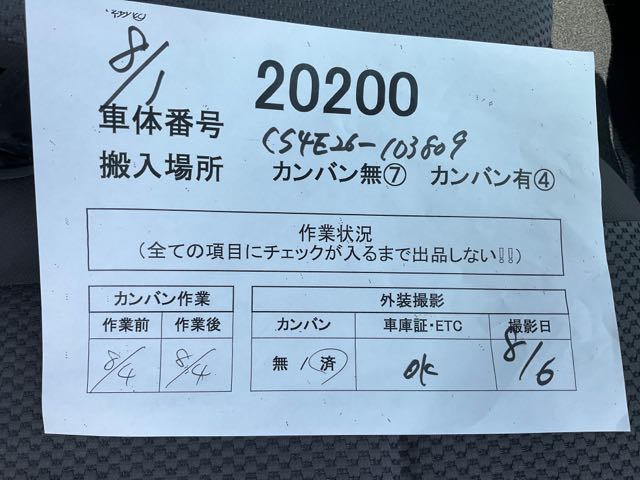 8/1
20200
車体番号 CS4E26-103809
搬入場所 カンバン無⑦ カンバン有④
作業状況
(全ての項目にチェックが入るまで出品しない!!)
カンバン作業 外装撮影
作業前 作業後 カンバン 車庫証・ETC 撮影日
8/4 8/4 無 / 済 ok 8/6